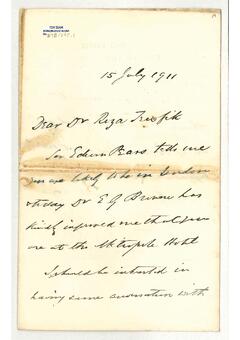 15 July 1911
Dear Dr Riza Tewfik
Sir Edwin Pears tells me
you are likely to be in London
& today Dr E G Browne has
kindly informed me that you
are at the Metropole Hotel
I should be interested in
having some conversation with